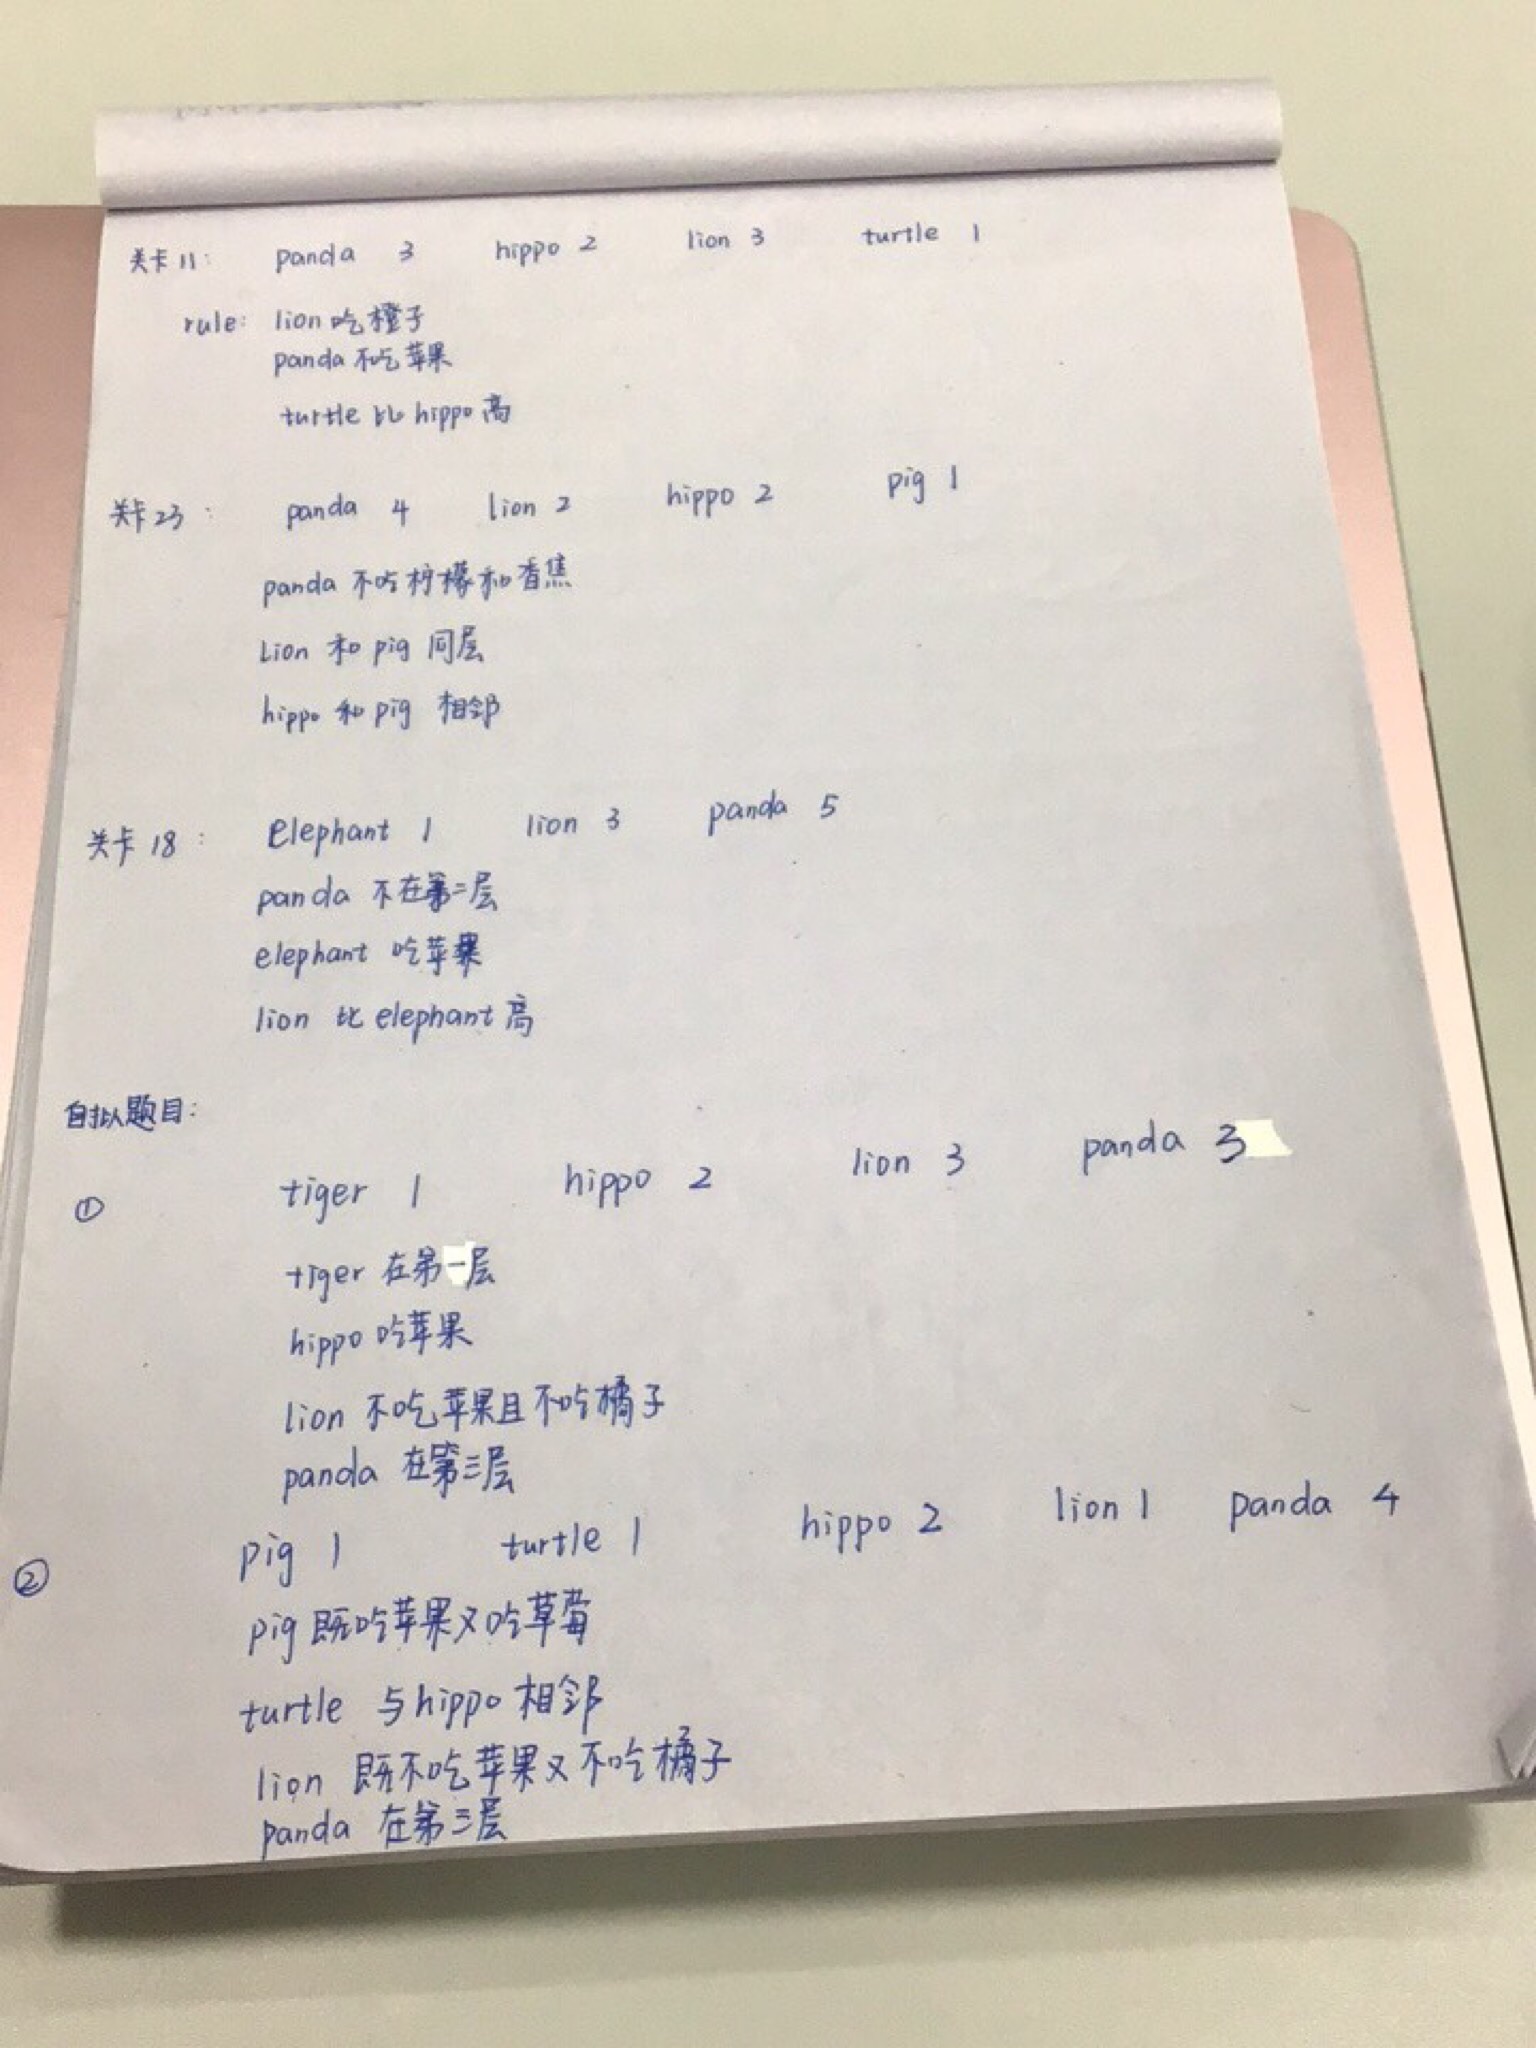 关卡11: panda 3 hippo 2 lion 3 turtle 1
rule: lion吃橙子
panda不吃苹果
turtle比hippo高
关卡23: panda 4 lion 2 hippo 2 pig 1
panda不吃柠檬和香焦
Lion和pig同层
hippo和pig相邻
关卡18: elephant 1 lion 3 panda 5
panda不在第二层
elephant吃苹果
lion比elephant高
自拟题目:
① tiger 1 hippo 2 lion 3 panda 3
tiger在第一层
hippo吃苹果
lion不吃苹果且不吃橘子
panda在第三层
② pig 1 turtle 1 hippo 2 lion 1 panda 4
pig既吃苹果又吃草莓
turtle与hippo相邻
lion既不吃苹果又不吃橘子
panda在第三层